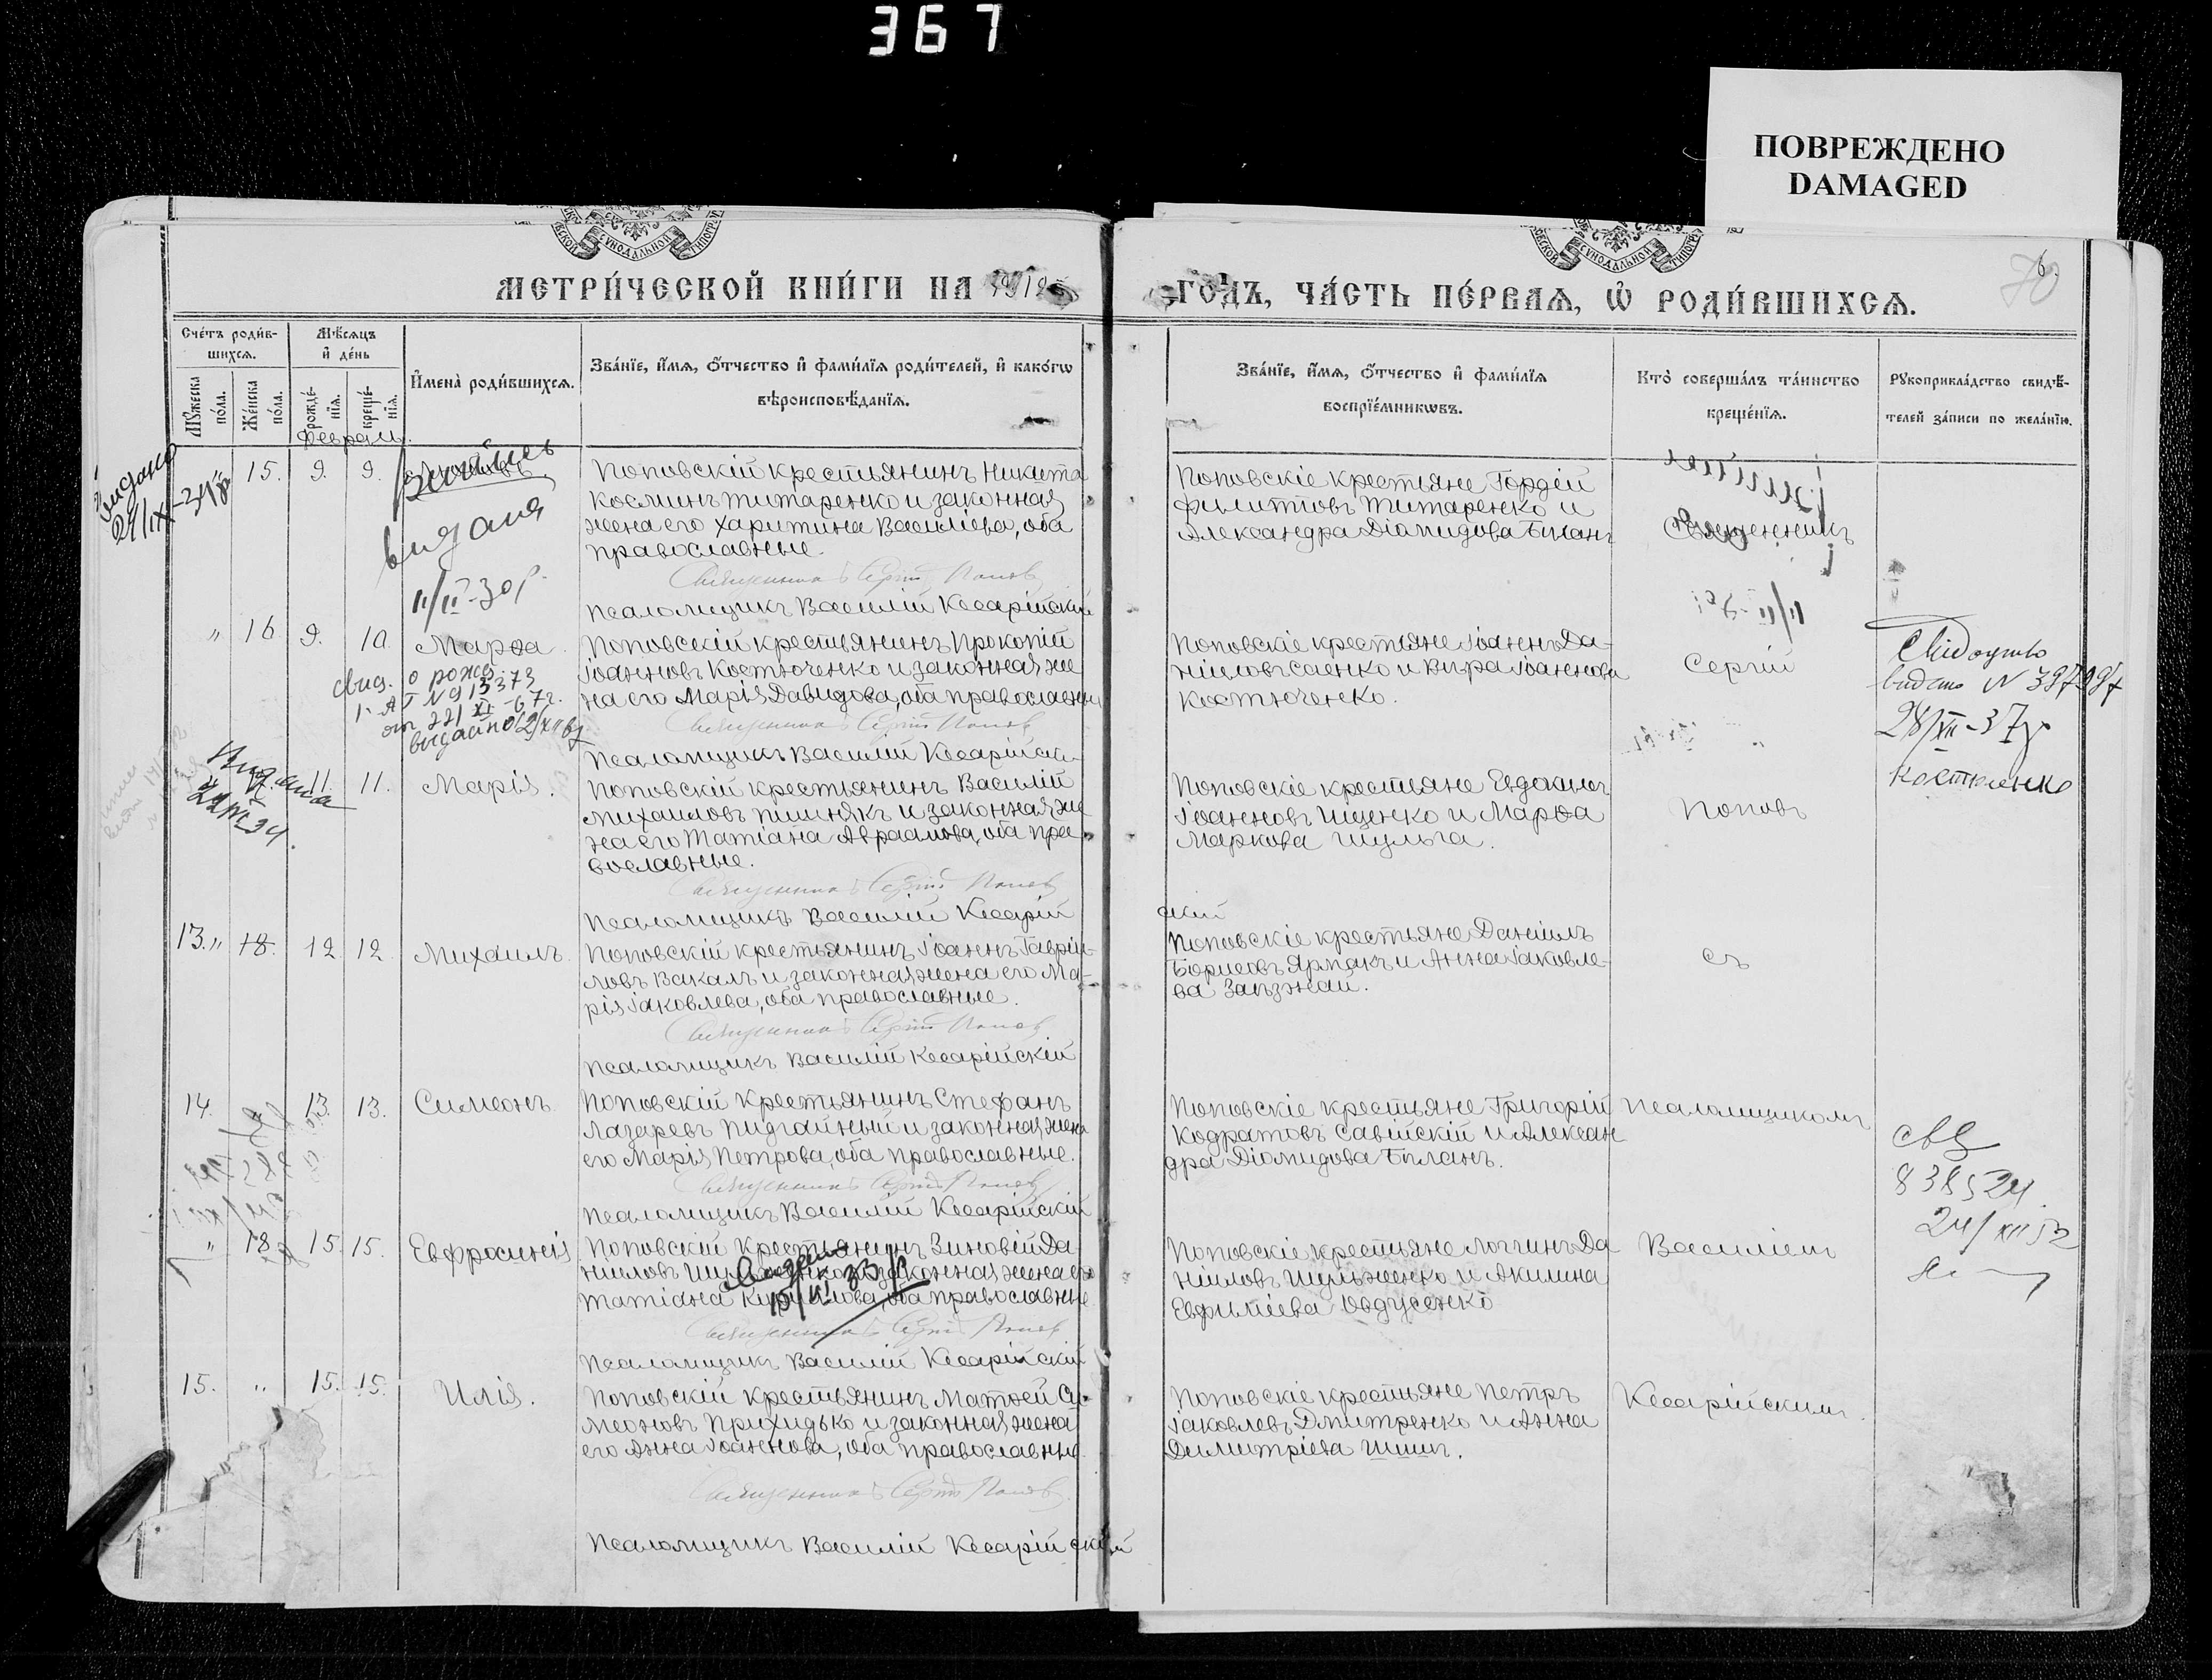 367
ПОВРЕЖДЕНО
DAMAGED
МЕТРИ́ЧЕСКОЙ КНИ́ГИ НА 1912
ГО́ДЪ, ЧА́СТЬ ПЕ́РВАЯ, Ѡ҆ РОДИ́ВШИХСЯ.
70
Сче́тъ роди́в-
шихся.
Мѣ́сяцъ
и҆ де́нь
Мꙋ́жеска по́ла.
Же́нска по́ла.
рожде́-нїя.
креще́-нїя.
И҆мена̀ роди́вшихся.
Зва́нїе, и҆́мя, ѻ҆́тчество и҆ фами́лїя роди́телей, и҆ како́гѡ
вѣроисповѣ́данїя.
Зва́нїе, и҆́мя, ѻ҆́тчество и҆ фами́лїя
воспрїе́мникѡвъ.
Кто̀ соверша́лъ та́инство
креще́нїя.
Рꙋкоприкла́дство свидѣ́-
телей за́писи по жела́нїю.
Февраль.
15. 9. 9.
видана
11/II-30р
Поповскій крестьянинъ Никита
Косминъ Титаренко и законная
жена его Харитина Василіева, оба
православные.
Священникъ Сергій Поповъ
Псаломщикъ Василій Кесарійскій
Поповскіе крестьяне Гордей
Филипповъ Титаренко и
Александра Діомидова Биланъ
Священникъ
" 16 9. 10. Марѳа.
свид. о рожд.
выдано
Поповсскій крестьянинъ Прокопій
Іоанновъ Костюченко и законная же
на его Марія Давидова, оба православны
Священникъ Сергій Поповъ
Псаломщикъ Василій Кесарійскі
Поповскіе крестьяне Іоаннъ Да-
ніиловъ Саенко и Вѣра Іоаннова
Костюченко.
Сергій
Свідоцтво
видано N 397987
28/XII-37р
Костюченко
11. 11. Марія.
Поповскій крестьянинъ Василій
Михаиловъ Пшинякъ и законная же
на его Татіана Авраамова, оба пра
вославные.
Священникъ Сергій Поповъ
Псаломщикъ Василій Кесарій
скій
Поповскіе крестьяне Евдокимъ
Іоанновъ Ищенко и Марѳа
Маркова Шульга.
Поповъ
13. " 18. 12. 12. Михаилъ.
Поповскій крестьянинъ Іоаннъ Гаврій-
ловъ Вакалъ и законная жена его Ма-
рія Іаковлева, оба православные.
Священникъ Сергій Поповъ
Псаломщикъ Василій Кесарійскій
Поповскіе крестьяне Даніилъ
Борисовъ Ярмакъ и Анна Іаковле-
ва Заѣзжай.
съ
14. 13. 13. Симеонъ
Поповскій крестьянинъ Стефанъ
Лазаревъ Пидгайный и законная жена
его Марія Петрова, оба православные.
Священникъ Сергій Поповъ
Псаломщикъ Василій Кесарійскій
Поповскіе крестьяне Григорій
Кодратовъ Савійскій и Алексан
дра Діомидова Биланъ.
Псаломщикомъ
838524
24/XII 52
" 18 15. 15. Евфросинія
Поповскій крестьянинъ Зиновій Да
ніиловъ Шульженко и законная жена его
Татіана Кириллова, оба православные.
Священникъ Сергій Поповъ
Псаломщикъ Василій Кесарійскій
Поповскіе крестьяне Логгинъ Да
ніиловъ Шульженко и Акилина
Евфиміева Овдусенко
Василіем
15. " 15. 15. Илія.
Поповскій крестьянинъ Матѳей Си
меоновъ Прихидько и законная жена
его Анна Іоаннова, оба православные.
Священникъ Сергій Поповъ
Псаломщикъ Василій Кесарійскій
Поповскіе крестьяне Петръ
Іаковлевъ Дмитренко и Анна
Димитріева Шишъ.
Кесарійскимъ.